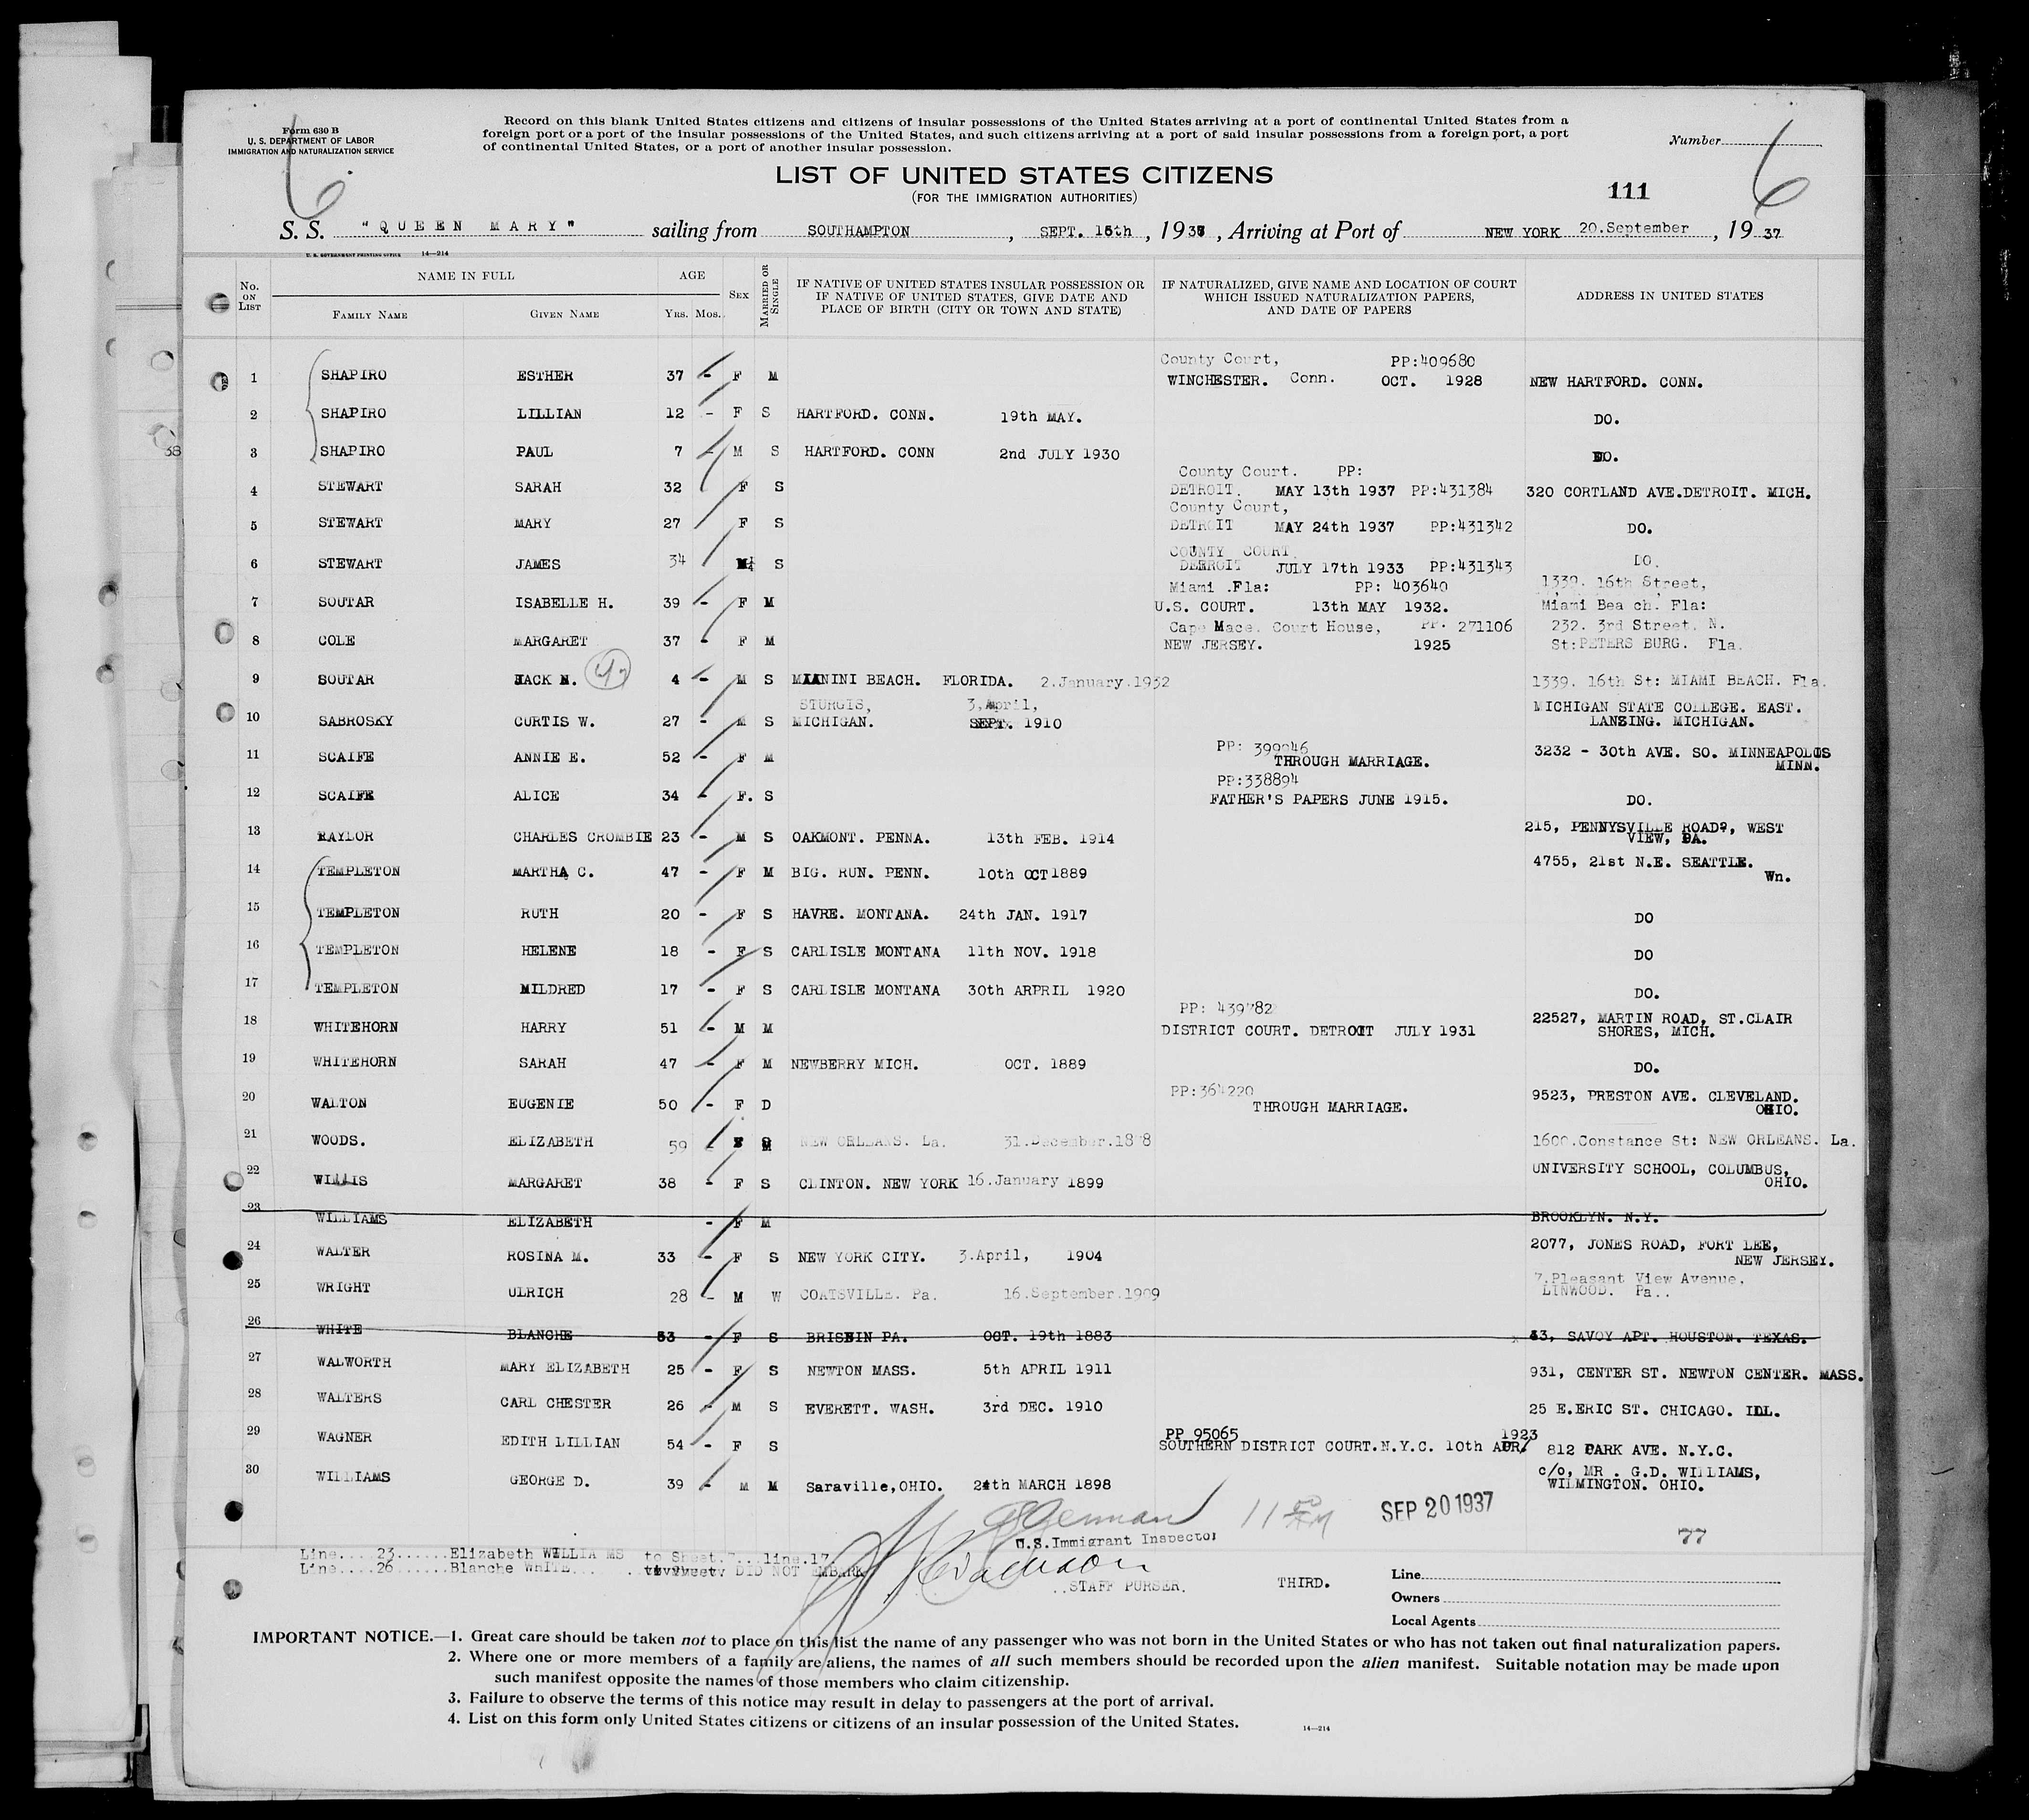 Form 630 B
U. S. DEPARTMENT OF LABOR
IMMIGRATION AND NATURALIZATION SERVICE
6
Record on this blank United States citizens and citizens of insular possessions of the United States arriving at a port of continental United States from a
foreign port or a port of the insular possessions of the United States, and such citizens arriving at a port of said insular possessions from a foreign port, a port
of continental United States, or a port of another insular possession.
Number 6
LIST OF UNITED STATES CITIZENS
(FOR THE IMMIGRATION AUTHORITIES)
111
S. S. "QUEEN MARY" sailing from SOUTHAMPTON, SEPT. 15th, 1937, Arriving at Port of NEW YORK 20.September, 1937
U. S. GOVERNMENT PRINTING OFFICE 14—214
No. ON LIST
NAME IN FULL
FAMILY NAME GIVEN NAME
AGE
YRS. MOS.
SEX
MARRIED OR SINGLE
IF NATIVE OF UNITED STATES INSULAR POSSESSION OR
IF NATIVE OF UNITED STATES, GIVE DATE AND
PLACE OF BIRTH (CITY OR TOWN AND STATE)
IF NATURALIZED, GIVE NAME AND LOCATION OF COURT
WHICH ISSUED NATURALIZATION PAPERS,
AND DATE OF PAPERS
ADDRESS IN UNITED STATES
County Court, PP:409680
1 SHAPIRO ESTHER 37 - F M WINCHESTER. Conn. OCT. 1928 NEW HARTFORD. CONN.
2 SHAPIRO LILLIAN 12 - F S HARTFORD. CONN. 19th MAY. DO.
3 SHAPIRO PAUL 7 - M S HARTFORD. CONN 2nd JULY 1930 DO.
County Court. PP:
4 STEWART SARAH 32 F S DETROIT. MAY 13th 1937 PP:431384 320 CORTLAND AVE.DETROIT. MICH.
County Court,
5 STEWART MARY 27 F S DETROIT MAY 24th 1937 PP:431342 DO.
COUNTY COURT
6 STEWART JAMES 34 M S DETROIT JULY 17th 1933 PP:431343 DO.
Miami .Fla: PP: 403640 1339. 16th Street,
7 SOUTAR ISABELLE H. 39 - F M U.S. COURT. 13th MAY 1932. Miami Bea ch. Fla:
Cape Mace. Court House, PP. 271106 232. 3rd Street. N.
8 COLE MARGARET 37 - F M NEW JERSEY. 1925 St:PETERS BURG. Fla.
9 SOUTAR JACK N. 4 - M S BEACH. FLORIDA. 2.January.1932 1339. 16th St: MIAMI BEACH. Fla.
STURGIS, 3.April, MICHIGAN STATE COLLEGE. EAST.
10 SABROSKY CURTIS W. 27 - M S MICHIGAN. SEPT. 1910 LANZING. MICHIGAN.
PP: 3232 - 30th AVE. SO. MINNEAPOLIS
11 SCAIFE ANNIE E. 52 - F M THROUGH MARRIAGE. MINN.
PP:338894
12 SCAIFE ALICE 34 - F. S FATHER'S PAPERS JUNE 1915. DO.
13 RAYLOR CHARLES CROMBIE 23 - M S OAKMONT. PENNA. 13th FEB. 1914 215, PENNYSVILLE ROAD?, WEST
VIEW, PA.
14 TEMPLETON MARTHA C. 47 - F M BIG. RUN. PENN. 10th OCT 1889 4755, 21st N.E. SEATTLE.
Wn.
15 TEMPLETON RUTH 20 - F S HAVRE. MONTANA. 24th JAN. 1917 DO
16 TEMPLETON HELENE 18 - F S CARLISLE MONTANA 11th NOV. 1918 DO
17 TEMPLETON MILDRED 17 - F S CARLISLE MONTANA 30th ARPRIL 1920 DO.
PP: 22527, MARTIN ROAD, ST.CLAIR
18 WHITEHORN HARRY 51 - M M DISTRICT COURT. DETROIT JULY 1931 SHORES, MICH.
19 WHITEHORN SARAH 47 - F M NEWBERRY MICH. OCT. 1889 DO.
PP:364220 9523, PRESTON AVE. CLEVELAND.
20 WALTON EUGENIE 50 - F D THROUGH MARRIAGE. OHIO.
21 WOODS. ELIZABETH 59 - F M NEW ORLEANS. La. 31.December. 1600.Constance St: NEW ORLEANS. La.
22 WILLIS MARGARET 38 - F S CLINTON. NEW YORK 16.January 1899 UNIVERSITY SCHOOL, COLUMBUS,
OHIO.
23 WILLIAMS ELIZABETH - F M BROOKLYN. N.Y.
24 WALTER ROSINA M. 33 - F S NEW YORK CITY. 3.April, 1904 2077, JONES ROAD, FORT LEE,
NEW JERSEY.
25 WRIGHT ULRICH 28 - M W COATSVILLE. Pa. 16.September.1909 7.Pleasant View Avenue.
LINWOOD. Pa..
26 WHITE BLANCHE 53 - F S BRISBIN PA. OCT. 19th 1883 43, SAVOY APT. HOUSTON. TEXAS.
27 WALWORTH MARY ELIZABETH 25 - F S NEWTON MASS. 5th APRIL 1911 931, CENTER ST. NEWTON CENTER. MASS.
28 WALTERS CARL CHESTER 26 - M S EVERETT. WASH. 3rd DEC. 1910 25 E.ERIC ST. CHICAGO. ILL.
PP 95065 1923
29 WAGNER EDITH LILLIAN 54 - F S SOUTHERN DISTRICT COURT.N.Y.C. 10th APR/ 812 PARK AVE. N.Y.C.
30 WILLIAMS GEORGE D. 39 - M M Saraville,OHIO. 24th MARCH 1898 c/o, MR . G.D. WILLIAMS,
WILMINGTON. OHIO.
SEP 20 1937
U.S.Immigrant Inspector
77
Line....23......Elizabeth WILLIA MS to Sheet. line.17.
Line....26......Blanche WHITE DID NOT EMBARK
STAFF PURSER. THIRD.
Line
Owners
Local Agents
IMPORTANT NOTICE.—1. Great care should be taken not to place on this list the name of any passenger who was not born in the United States or who has not taken out final naturalization papers.
2. Where one or more members of a family are aliens, the names of all such members should be recorded upon the alien manifest. Suitable notation may be made upon
such manifest opposite the names of those members who claim citizenship.
3. Failure to observe the terms of this notice may result in delay to passengers at the port of arrival.
4. List on this form only United States citizens or citizens of an insular possession of the United States.
14—214